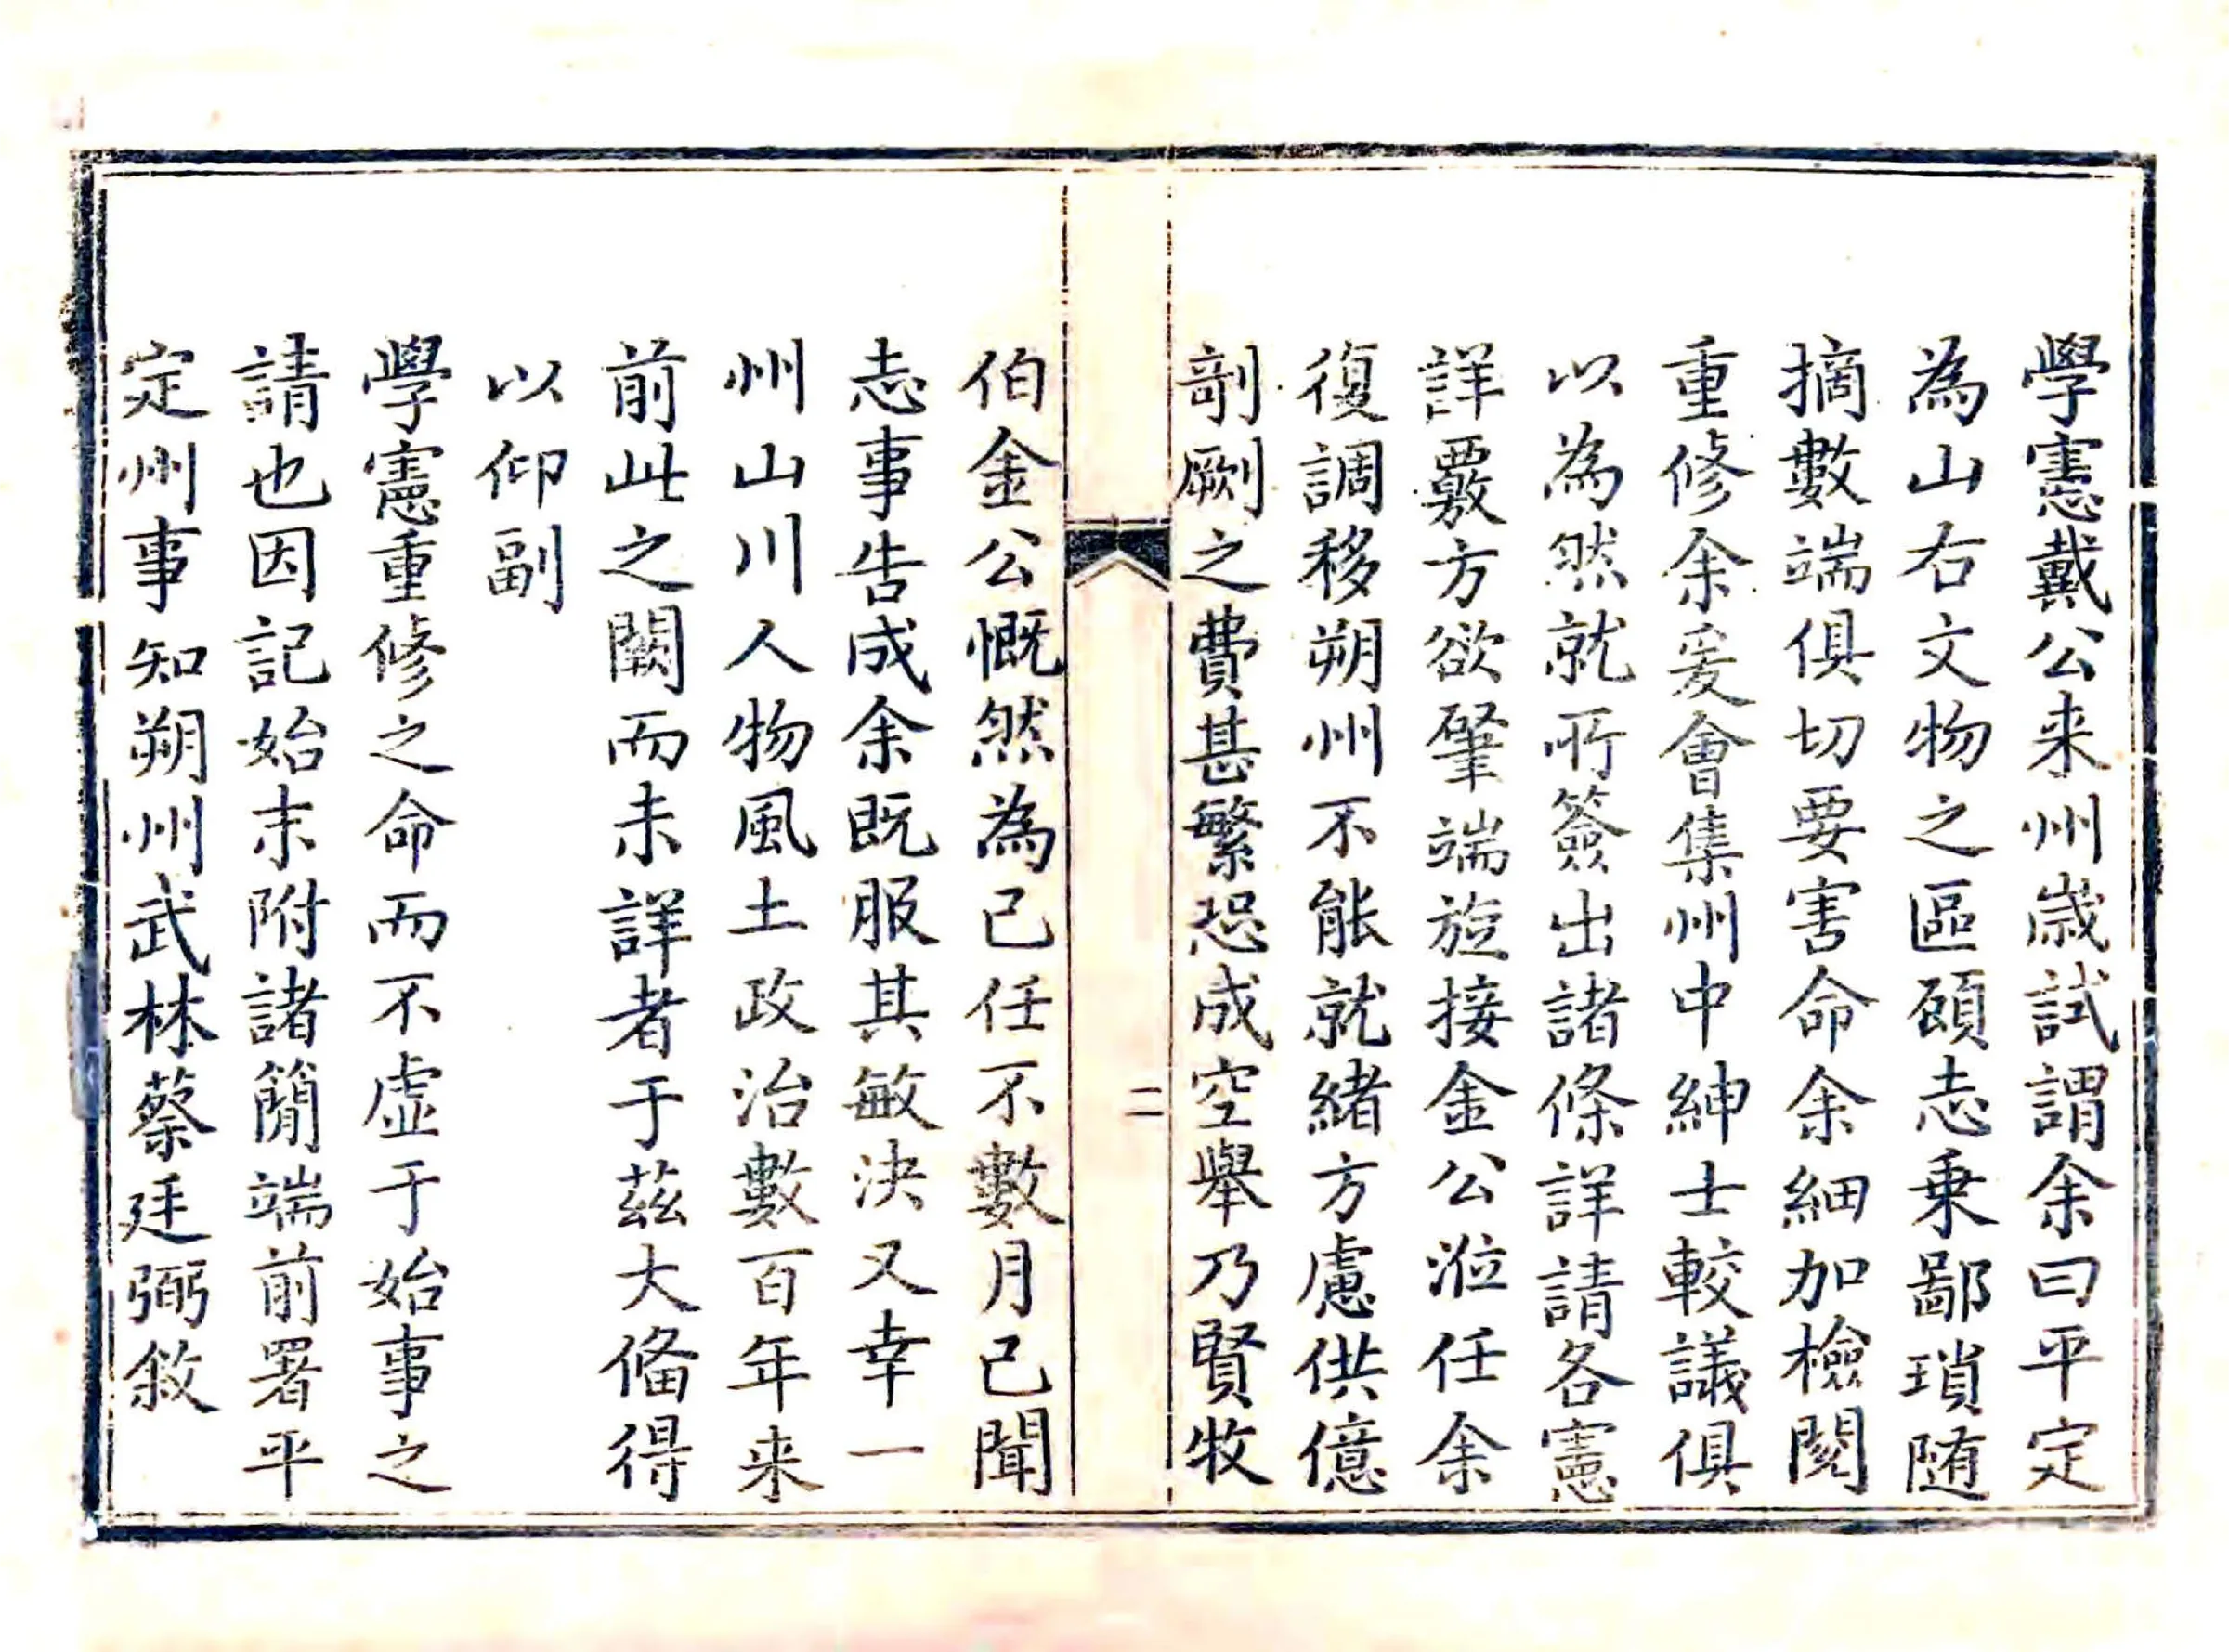 學憲戴公来州歳試謂余曰平定
為山右文物之區頋志乗鄙瑣随
摘數端俱切要害命余細加檢閱
重修余爰會集州中紳士較議俱
以為然就所簽出諸條詳請各憲
詳覈方欲肇端旋接金公涖任余
復調移朔州不能就緒方慮供億
剞劂之費甚繁恐成空舉乃賢牧
二
伯金公慨然為己任不數月已聞
志事告成余既服其敏決又幸一
州山川人物風土政治數百年来
前此之闕而未詳者于茲大俻得
以仰副
學憲重修之命而不虛于始事之
請也因記始末附諸簡端前署平
定州事知朔州武林蔡廷弼敘